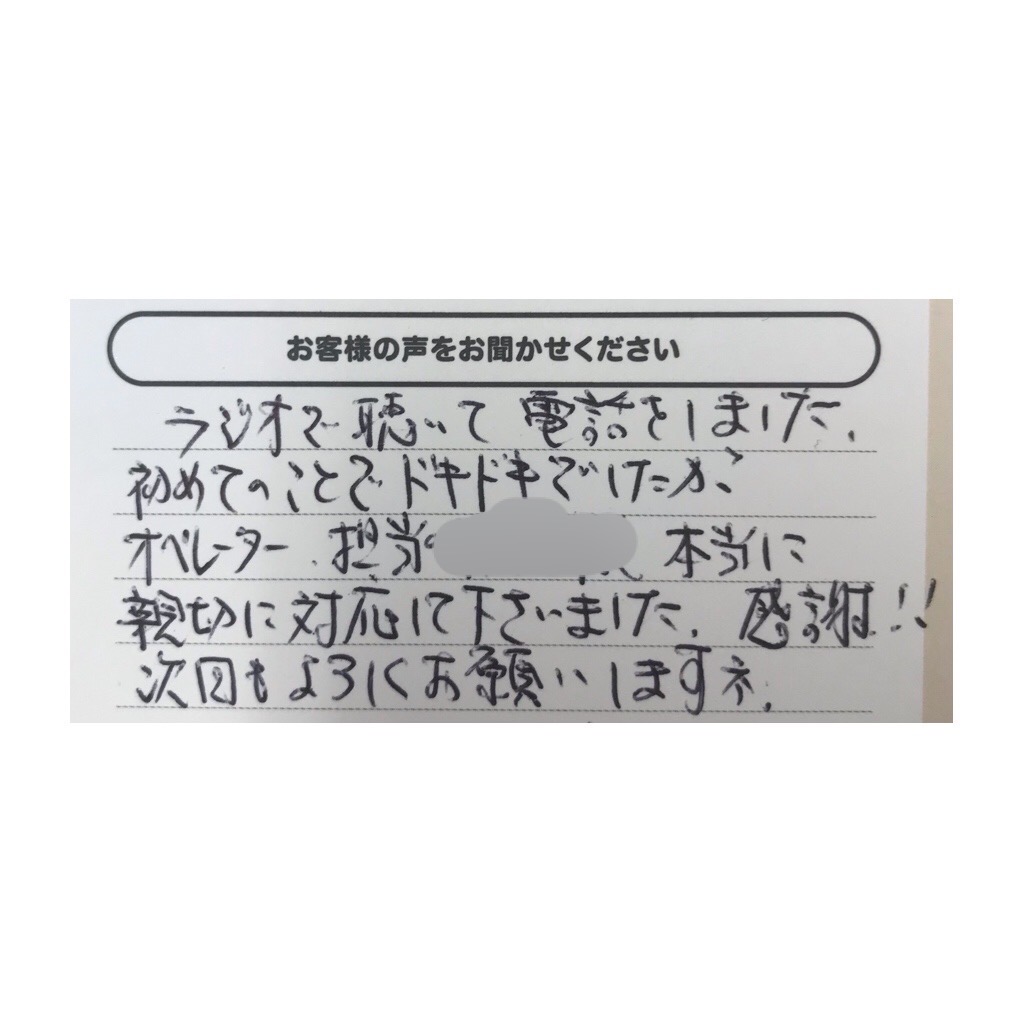 お客様の声をお聞かせください
ラジオで聴いて電話をしました.
初めてのことでドキドキでしたが
オペレーター 担当 本当に
親切に対応して下さいました. 感謝!!
次回もよろしくお願いしますネ.